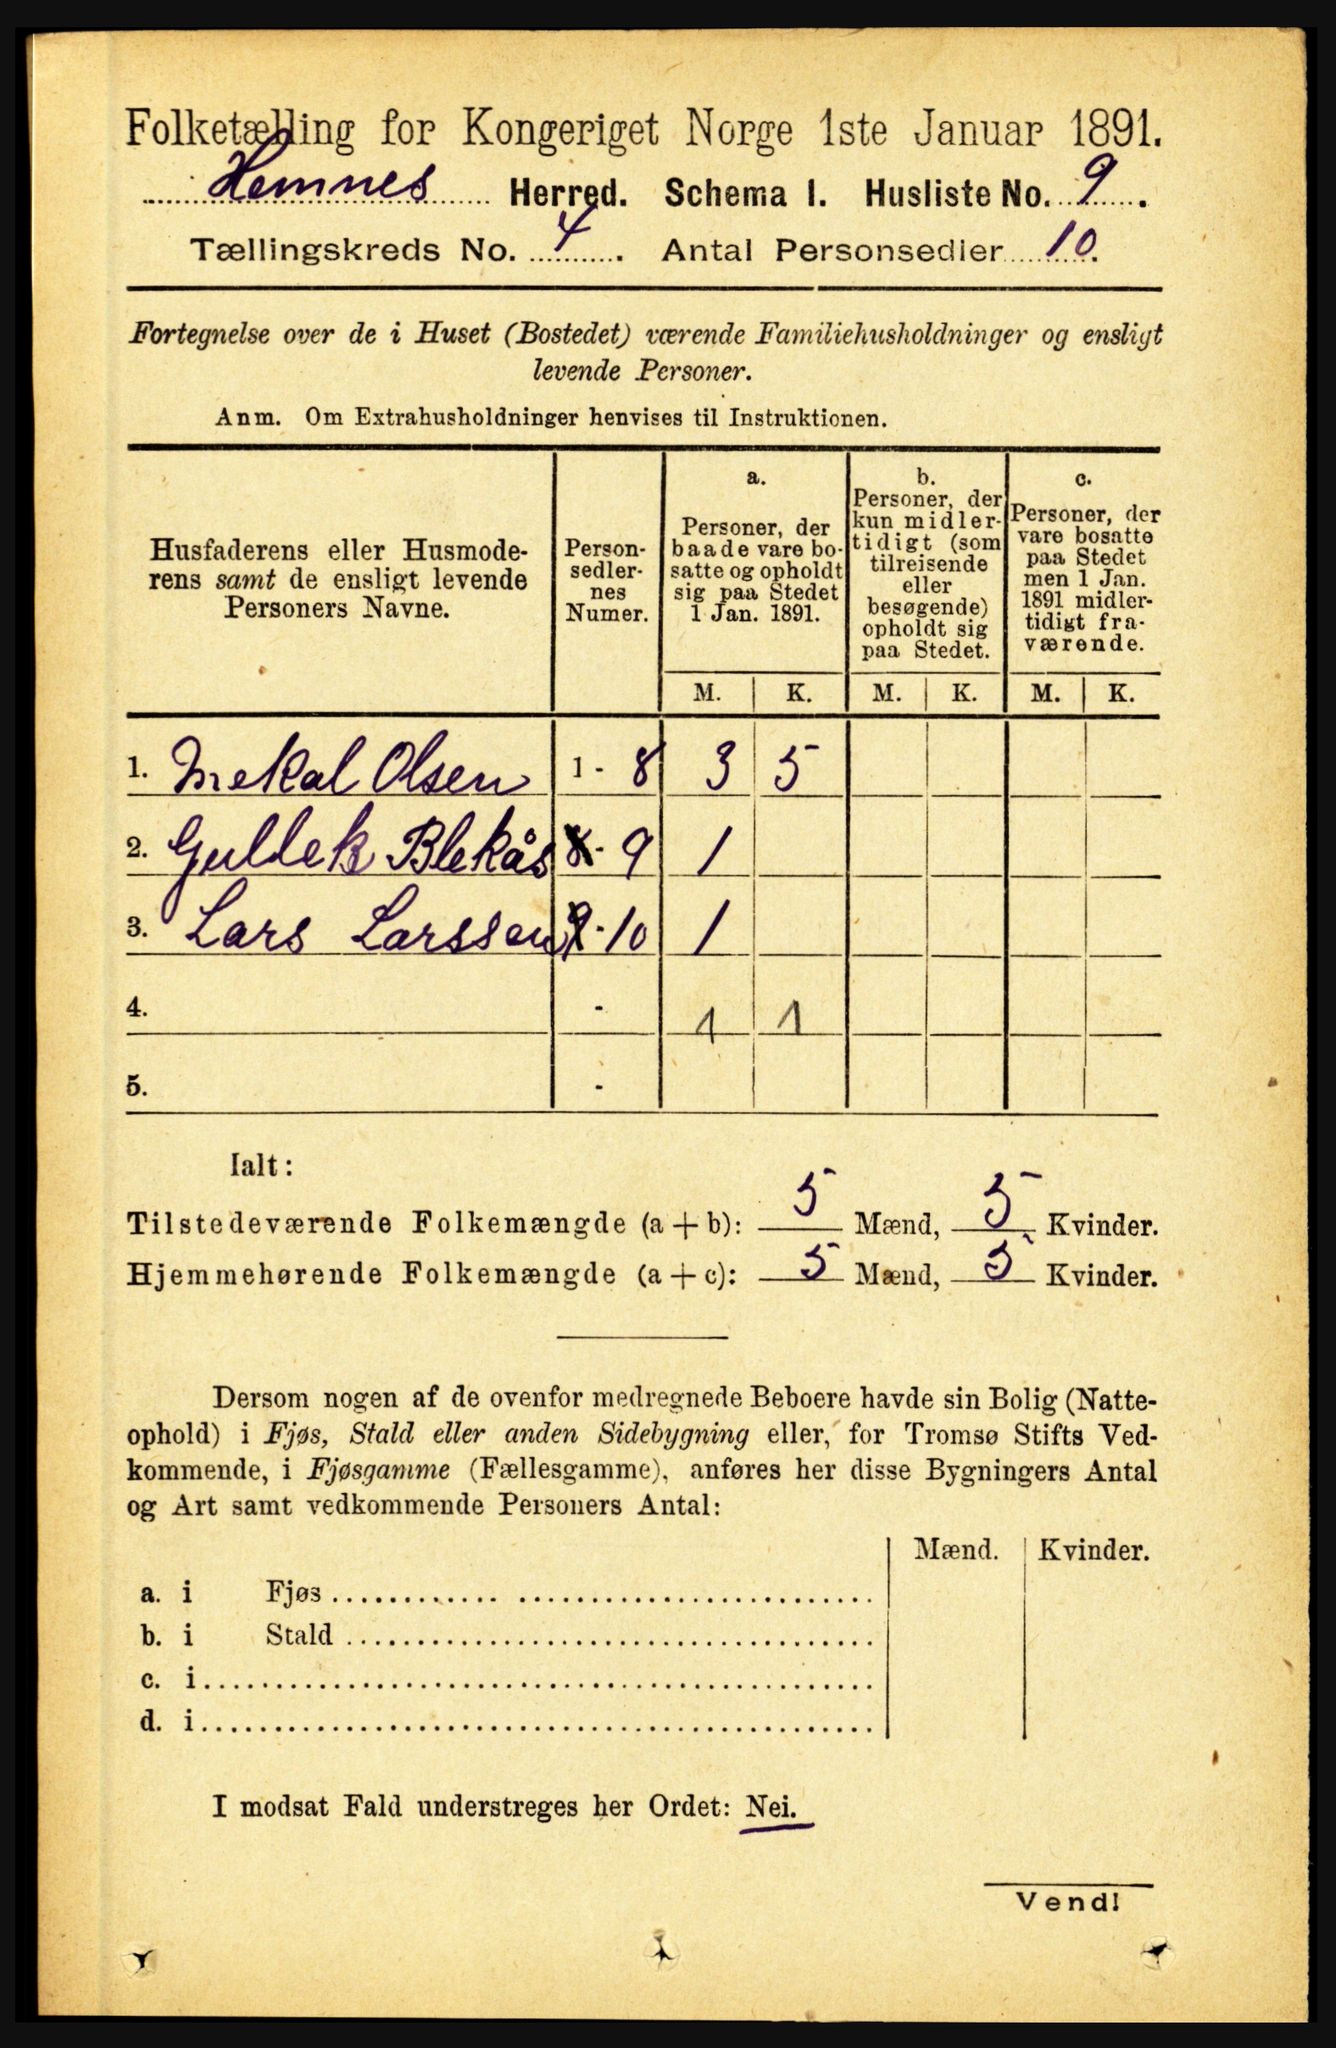 Folketælling for Kongeriget Norge 1ste Januar 1891.
Hemnes Herred. Schema I. Husliste No. 9.
Tællingskreds No. 4. Antal Personsedler 10.
Fortegnelse over de i Huset (Bostedet) værende Familiehusholdninger og ensligt
levende Personer.
Anm. Om Extrahusholdninger henvises til Instruktionen.
Husfaderens eller Husmode-
rens samt de ensligt levende
Personers Navne.
Person-
sedler-
nes
Numer.
a.
Personer, der
baade vare bo-
satte og opholdt
sig paa Stedet
1 Jan. 1891.
b.
Personer, der
kun midler-
tidigt (som
tilreisende
eller
besøgende)
opholdt sig
paa Stedet.
c.
Personer, der
vare bosatte
paa Stedet
men 1 Jan.
1891 midler-
tidigt fra-
værende.
M. K. M. K. M. K.
1. Mekal Olsen 1 - 8 3 5
2. Gullek Blekås - 9 1
3. Lars Larssen - 10 1
4. - 1 1
5. -
Ialt:
Tilstedeværende Folkemængde (a + b): 5 Mænd, 5 Kvinder.
Hjemmehørende Folkemængde (a + c): 5 Mænd, 5 Kvinder.
Dersom nogen af de ovenfor medregnede Beboere havde sin Bolig (Natte-
ophold) i Fjøs, Stald eller anden Sidebygning eller, for Tromsø Stifts Ved-
kommende, i Fjøsgamme (Fællesgamme), anføres her disse Bygningers Antal
og Art samt vedkommende Personers Antal:
Mænd. Kvinder.
a. i Fjøs
b. i Stald
c. i
d. i
I modsat Fald understreges her Ordet: Nei.
Vend!